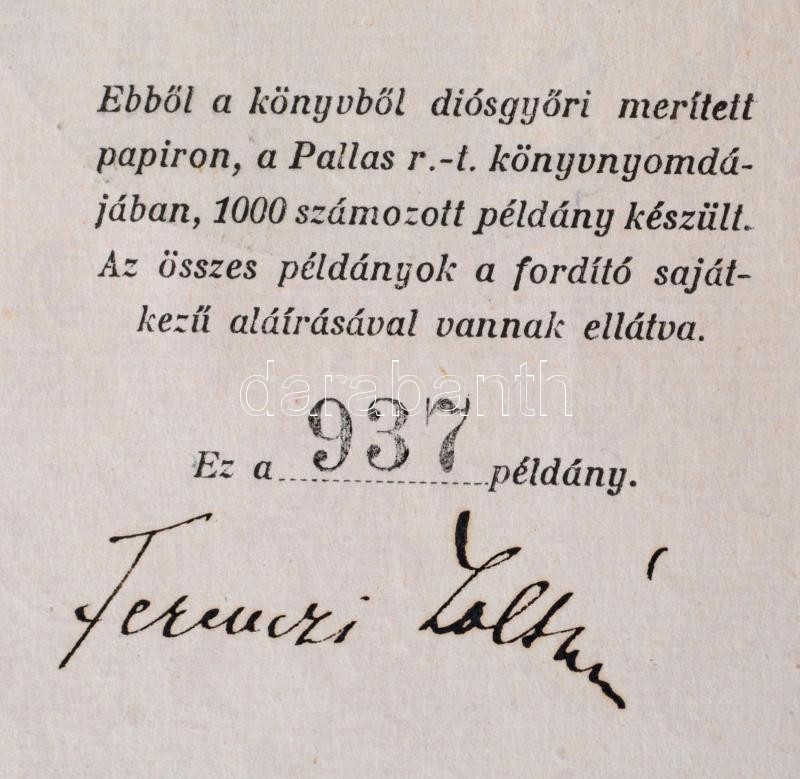 Ebből a könyvből diósgyőri merített
papiron, a Pallas r.-t. könyvnyomdá-
jában, 1000 számozott példány készült.
Az összes példányok a fordító saját-
kezű aláírásával vannak ellátva.
darabanth
Ez a 937 példány.
Ferenczi Zoltán